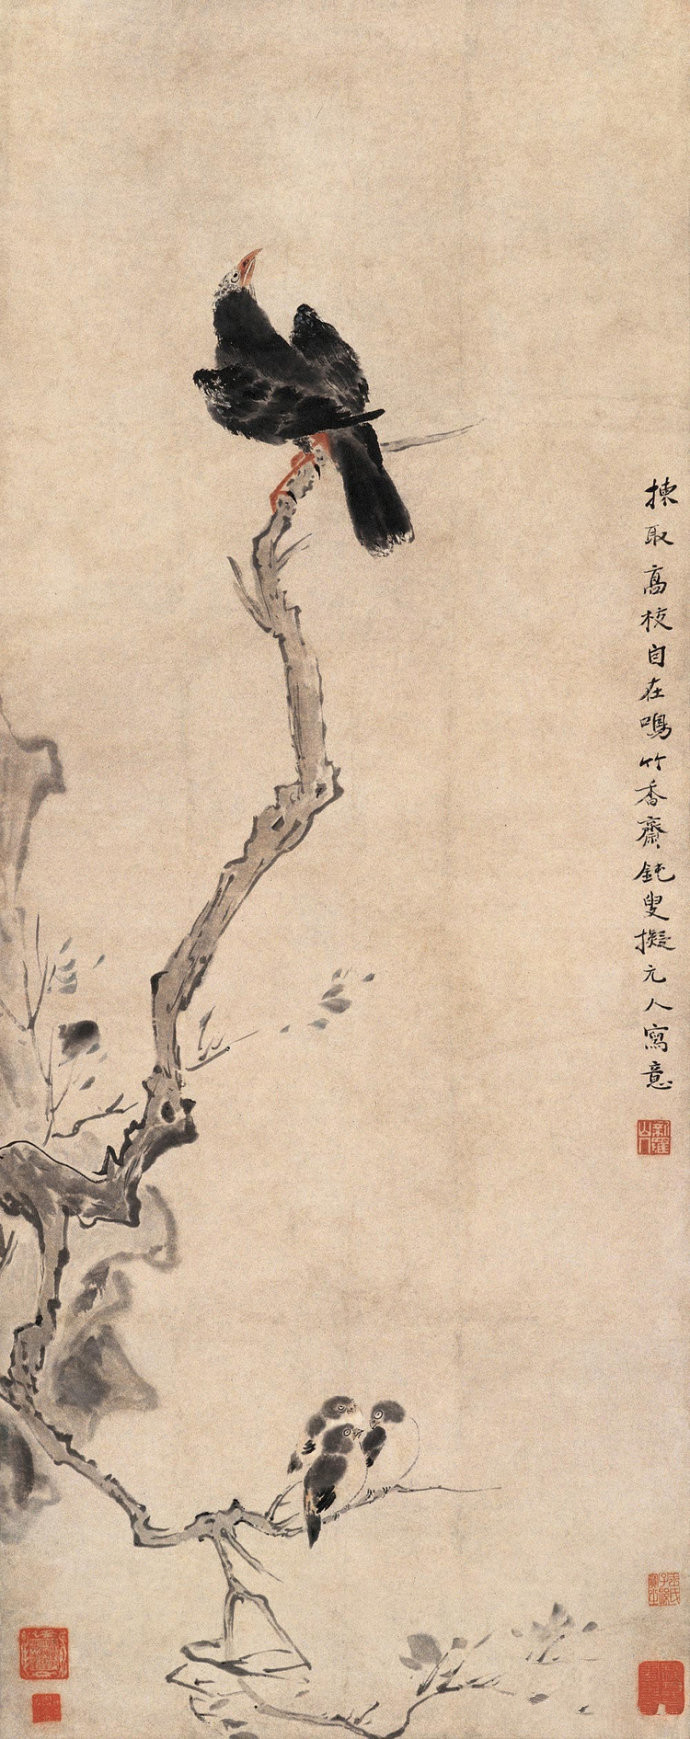 揀取高枝自在鳴竹香齋鈍叟擬元人寫意
新羅山人